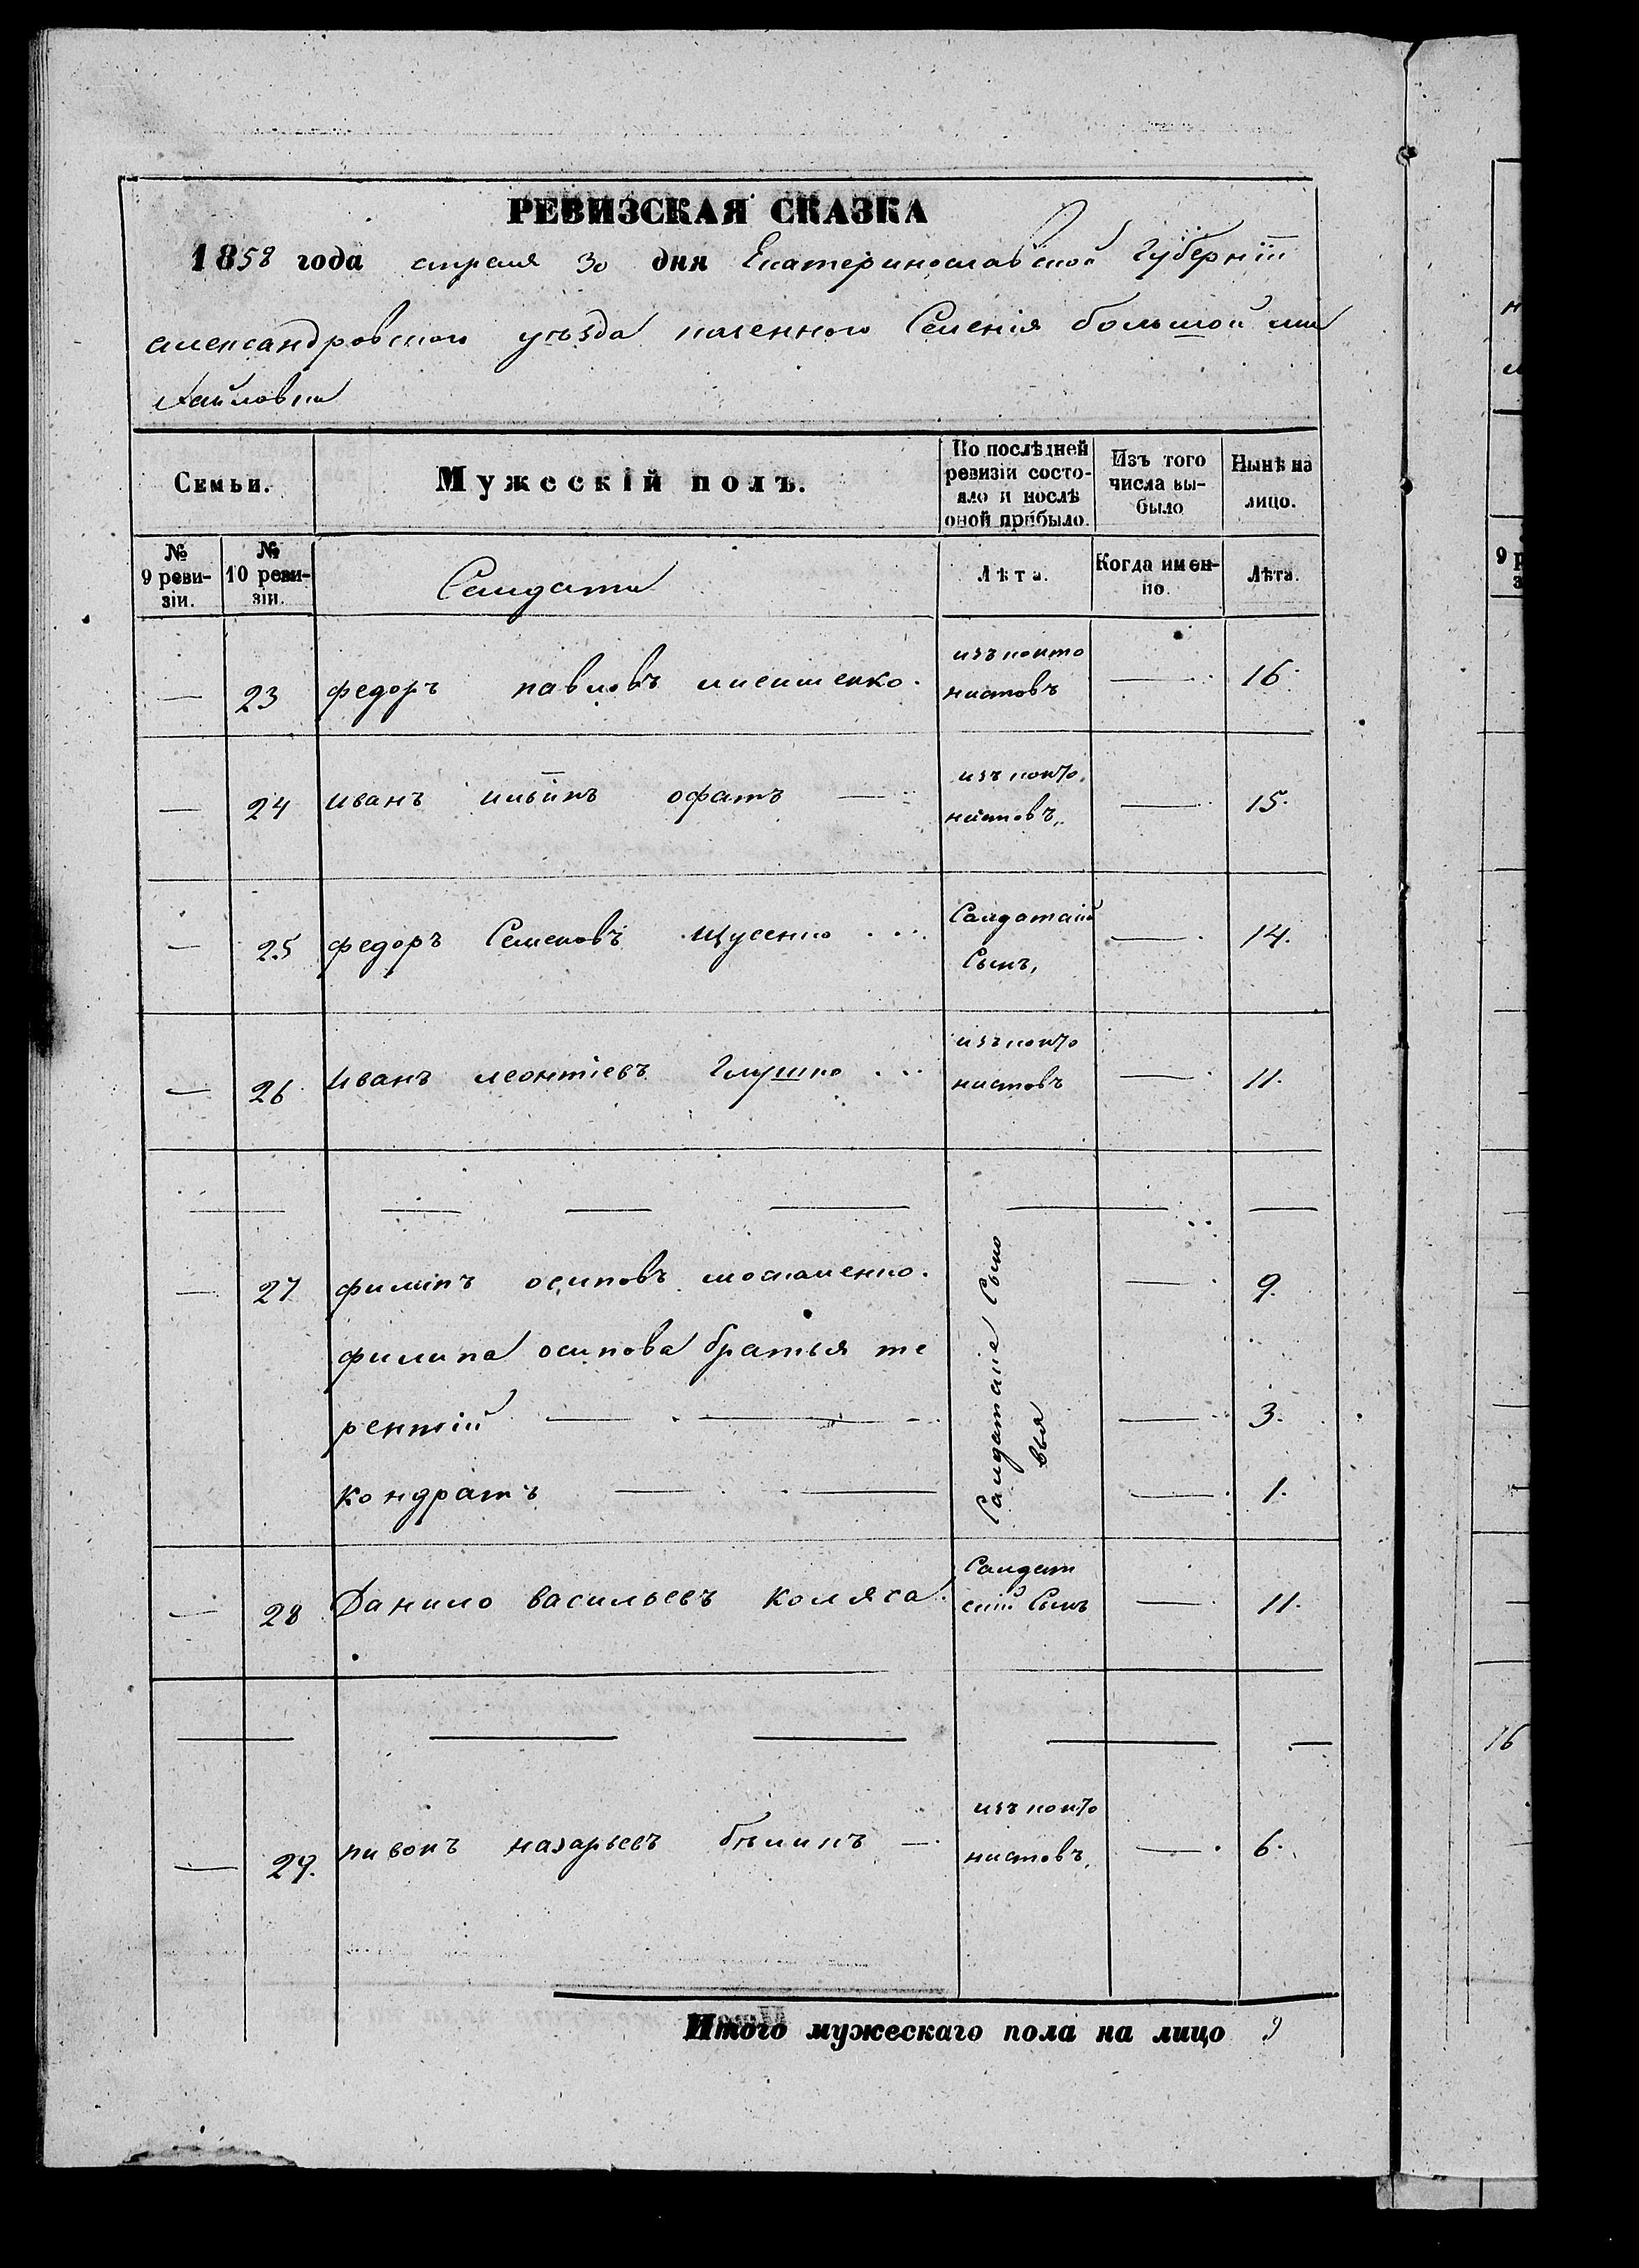 РЕВИЗСКАЯ СКАЗКА
1858 года апреля 30 дня Екатеринославской Губернїи
александровского уѣзда казенного Селенія большой ми
хайловки
Семьи.
Мужескій полъ.
По послѣдней
ревизіи состо-
яло и послѣ
оной прибыло.
Изъ того
числа вы-
было
Нынѣ на
лицо.
№
9 реви-
зіи.
№
10 реви-
зіи.
Салдати
Лѣта.
Когда имен-
но.
Лѣта.
— 23 федоръ павловъ
изъ канто
нистовъ — 16.
— 24 иванъ ильинъ офатъ —
изъ канто
нистовъ — 15.
— 25 федоръ Семеновъ Щусенко
Салдатскій
Сынъ, — 14.
— 26 Иванъ леонтіевъ Глушко
изъ канто
нистовъ — 11.
— 27 филипъ осиповъ — 9.
филипа осипова братья те
рентій — — 3.
кондратъ — — 1.
Салдатскіе Сыно
вья
— 28 Данило васильевъ коляса.
Салдат
скій Сынъ — 11.
— 29. пивонъ назарьевъ бѣликъ —
изъ канто
нистовъ, — 6.
Итого мужескаго пола на лицо 9
9 р
з
16